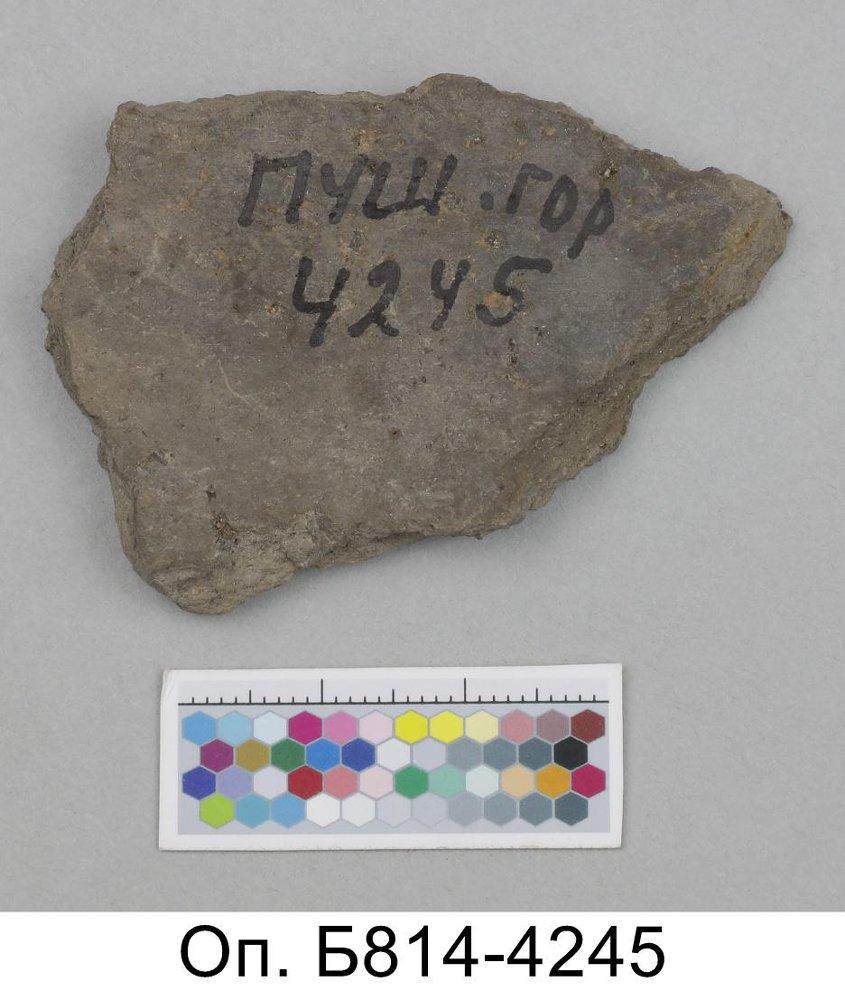 ПУШ.ГОР
4245
Оп. Б814-4245